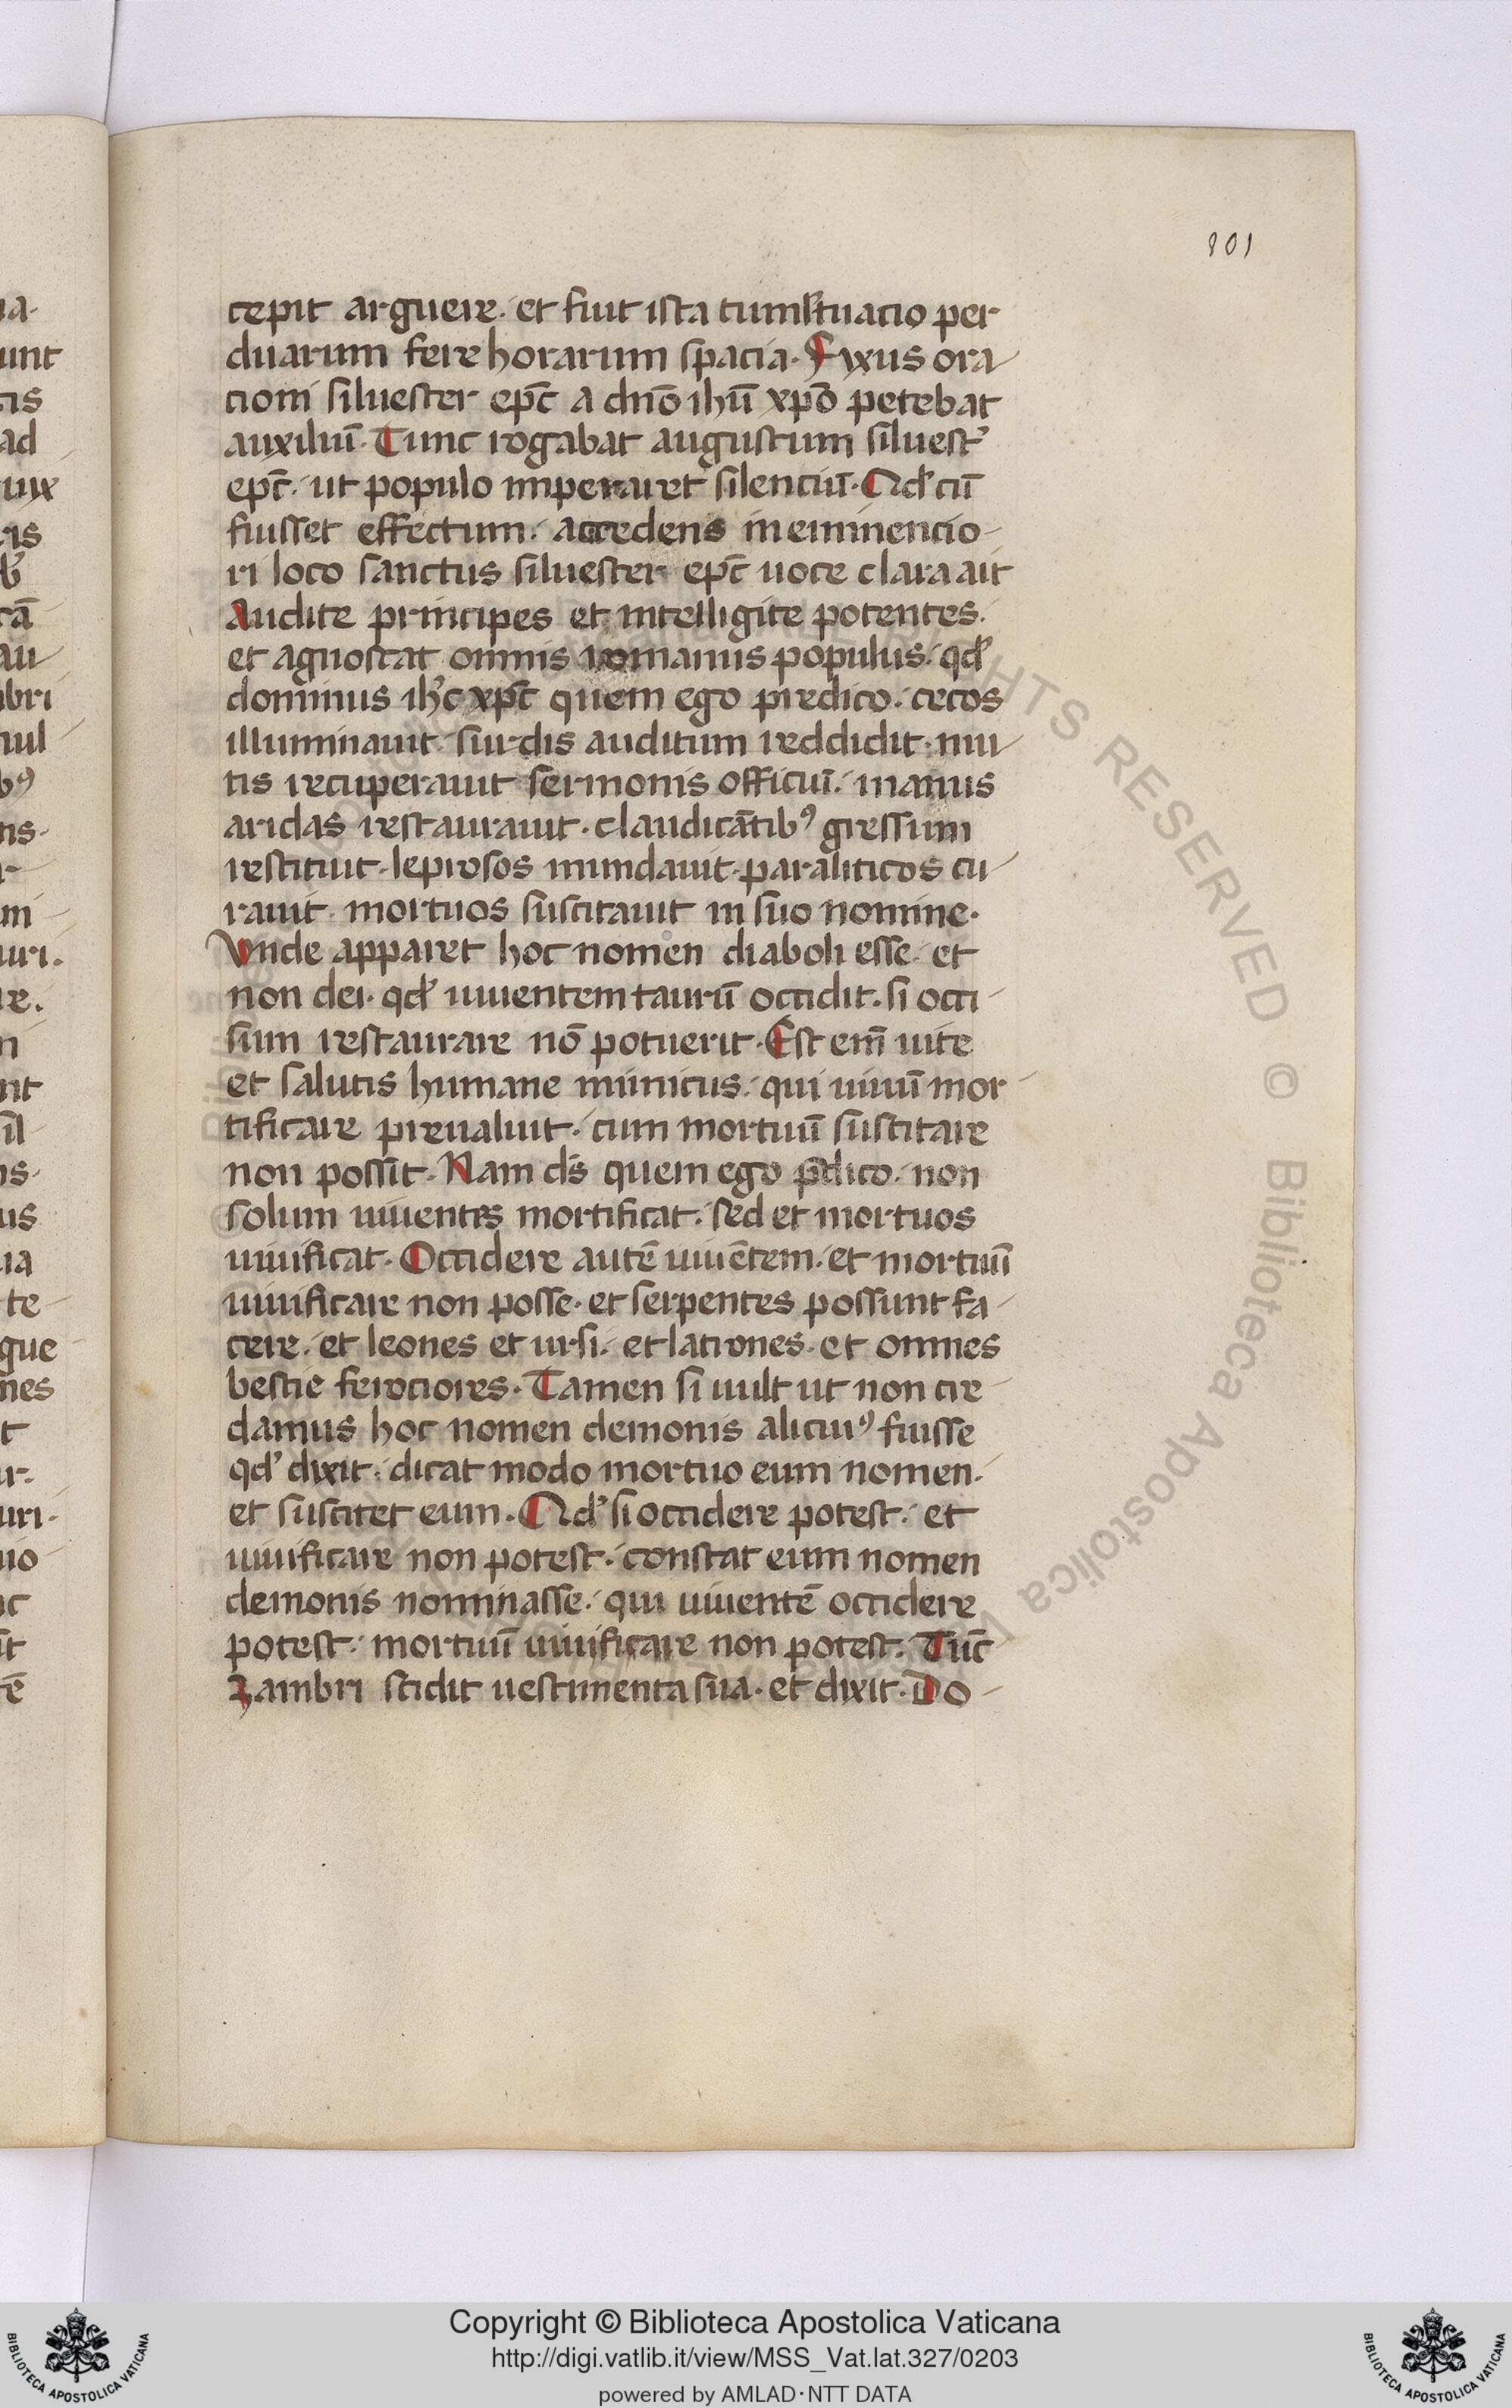 101
cepit arguere. et fiut ista tumultuatio per
duarum fere horarum spacia. Fixus ora
tioni siluester ep̄c a dn̄o ihū xp̄o petebat
auxiliū. Tunc rogabat augustum siluest̉
ep̄c. ut populo imperaret silenciū. Qd̉ cū
fuisset effectum. accedens in eminencio
ri loco sanctus siluester ep̄c uoce clara ait
Audite principes et intelligite potentes.
et agnoscat omnis romanus populus. qd̉
dominus ih̉c xp̄c quem ego predico. cecos
illuminauit. surdis auditum reddidit. mu
tis recuperauit sermonis officiū. manus
aridas restaurauit. claudicātibꝰ gressum
restituit. leprosos mundauit. paraliticos cu
rauit. mortuos suscitauit in suo nomine.
Vnde apparet hoc nomen diaboli esse. et
non dei. qd̉ uiuentem taurū occidit. si occi
sum restaurare nō potuerit. Est em̄ uite
et salutis humane inimicus. qui uiuū mor
tificare preualuit. cum mortuū suscitare
non possit. Nam ds̄ quem ego p̄dico. non
solum uiuentes mortificat. sed et mortuos
uiuificat. Occidere autē uiuētem. et mortuū
uiuificare non posse. et serpentes possunt fa
cere. et leones et ursi. et latrones. et omnes
bestie ferociores. Tamen si uult ut non cre
damus hoc nomen demonis alicuiꝰ fuisse
qd̉ dixit. dicat modo mortuo eum nomen.
et suscitet eum. Qd̉ si occidere potest. et
uiuificare non potest. constat eum nomen
demonis nominasse. qui uiuentē occidere
potest. mortuū uiuificare non potest. Tūc
Zambri scidit uestimenta sua. et dixit. Do
RIGHTS RESERVED © Biblioteca Apostolica
Copyright © Biblioteca Apostolica Vaticana
http://digi.vatlib.it/view/MSS_Vat.lat.327/0203
powered by AMLAD·NTT DATA
BIBLIOTECA APOSTOLICA VATICANA
BIBLIOTECA APOSTOLICA VATICANA